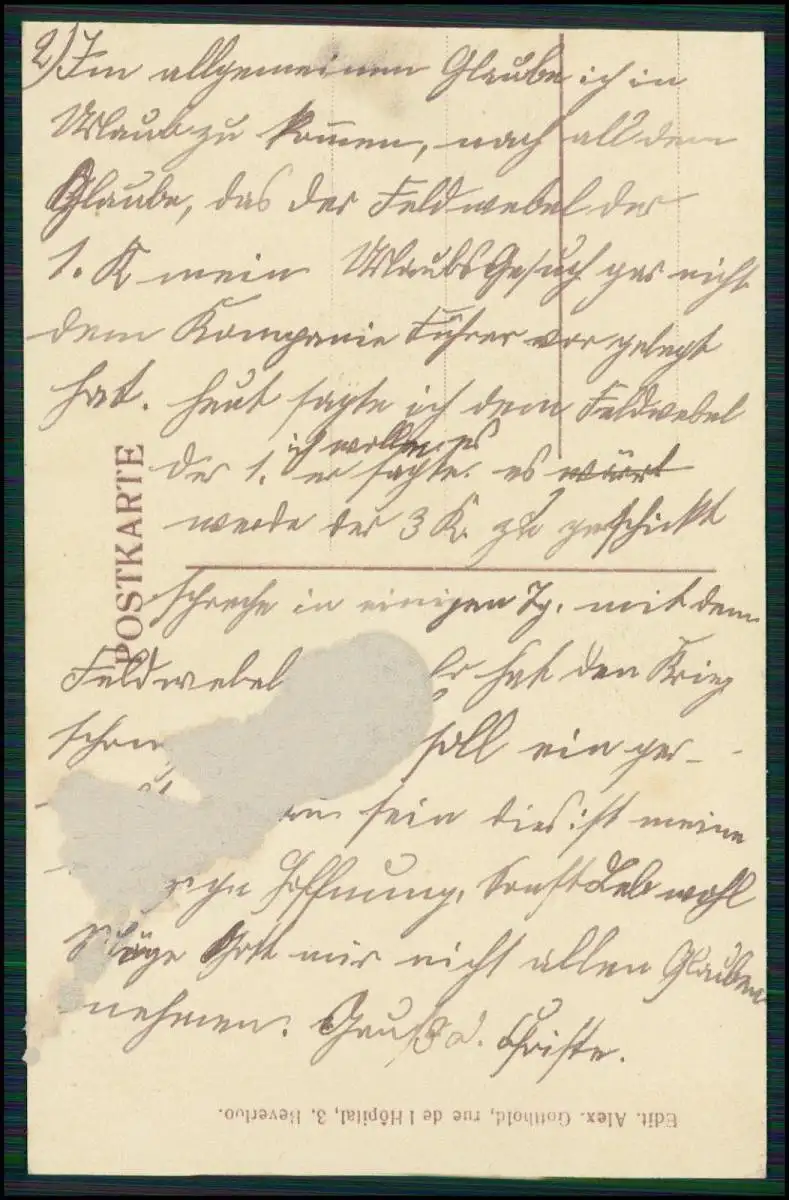 2) Im allgemeinen Glaube ich in
Urlaub zu kommen, nach all dem
Glaube, das der Feldwebel der
1. K mein UrlaubsGesuch gar nicht
dem Kompanie Führer vor gelegt
hat. Heut sagte ich dem Feldwebel
ich wollen es
der 1. er sagte. es wärt
werde der 3 K. zu geschickt
POSTKARTE
spreche in einigen Tg. mit dem
Feldwebel Er hat den Krieg
soll ein ger-
sein dies ist meine
Hoffnung. Sonst Leb wohl
Möge Gott mir nicht allen Glauben
nehmen. Gruß d. Christe.
Edit. Alex. Gotthold, rue de l Hôpital, 3. Beverloo.